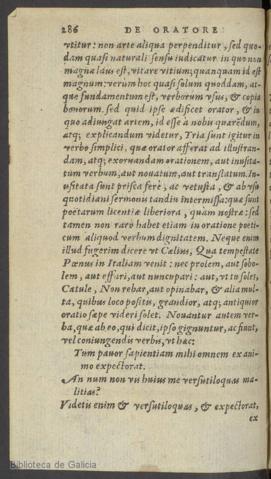 286 DE ORATORE
vtitur: non arte aliqua perpenditur, sed quo-
dam quasi naturali sensu iudicatur: in quo non
magna laus est, vitare vitium, quanquam id est
magnum: verum hoc quasi solum quoddam, at-
que fundamentum est, verborum vsus, & copia
bonorum. sed quid ipse ædificet orator, & in
quo adiungat artem, id esse à nobu quærēdum,
atq; explicandum videtur, Tria sunt igitur in
verbo simplici, quæ orator afferat ad illustran-
dam, atq; exornandam orationem, aut inusita-
tum verbum, aut nouatum, aut translatum. In-
usitata sunt prisca ferè, ac vetusta, & ab vsu
quotidiani sermonis tandiu intermissa: quæ sunt
poëtarum licentiæ liberiora, quàm nostræ: sed
tamen non raro habet etiam in oratione poëti-
cum aliquod verbum dignitatem. Neque enim
illud fugerim dicere vt Cælius, Qua tempestate
Pœnus in Italiam venit: nec prolem, aut sobo-
lem, aut effari, aut nuncupari: aut, vt tu soles,
Catule, Non rebar, aut opinabar, & alia mul-
ta, quibus loco positis, grandior, atq; antiquior
oratio sæpe videri solet. Nouantur autem ver-
ba, quæ ab eo, qui dicit, ipso gignuntur, ac fiunt,
vel coniungendis verbis, vt hæc:
Tum pauor sapientiam mihi omnem ex ani-
mo expectorat.
An num non vis huius me versutiloquas ma-
litias?
Videtis enim & versutiloquas, & expectorat,
ex
Biblioteca de Galicia